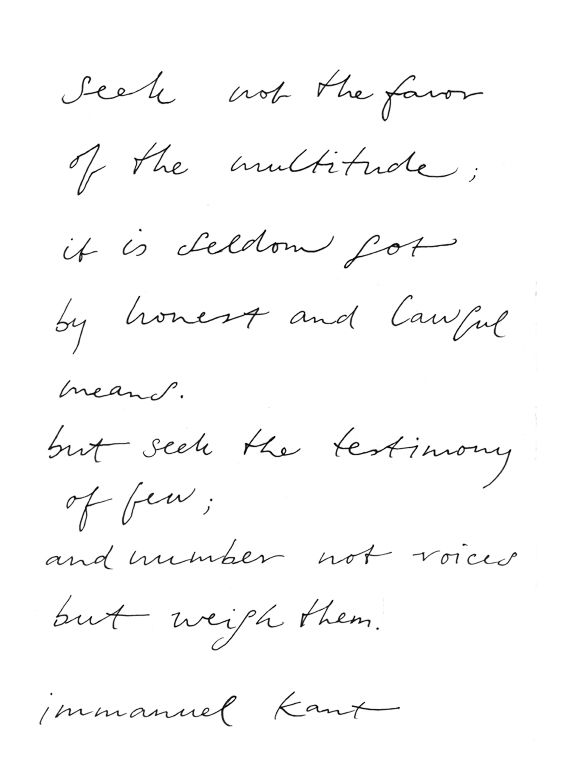 seek not the favor
of the multitude;
it is seldom got
by honest and lawful
means.
but seek the testimony
of few;
and number not voices
but weigh them.
immanuel kant